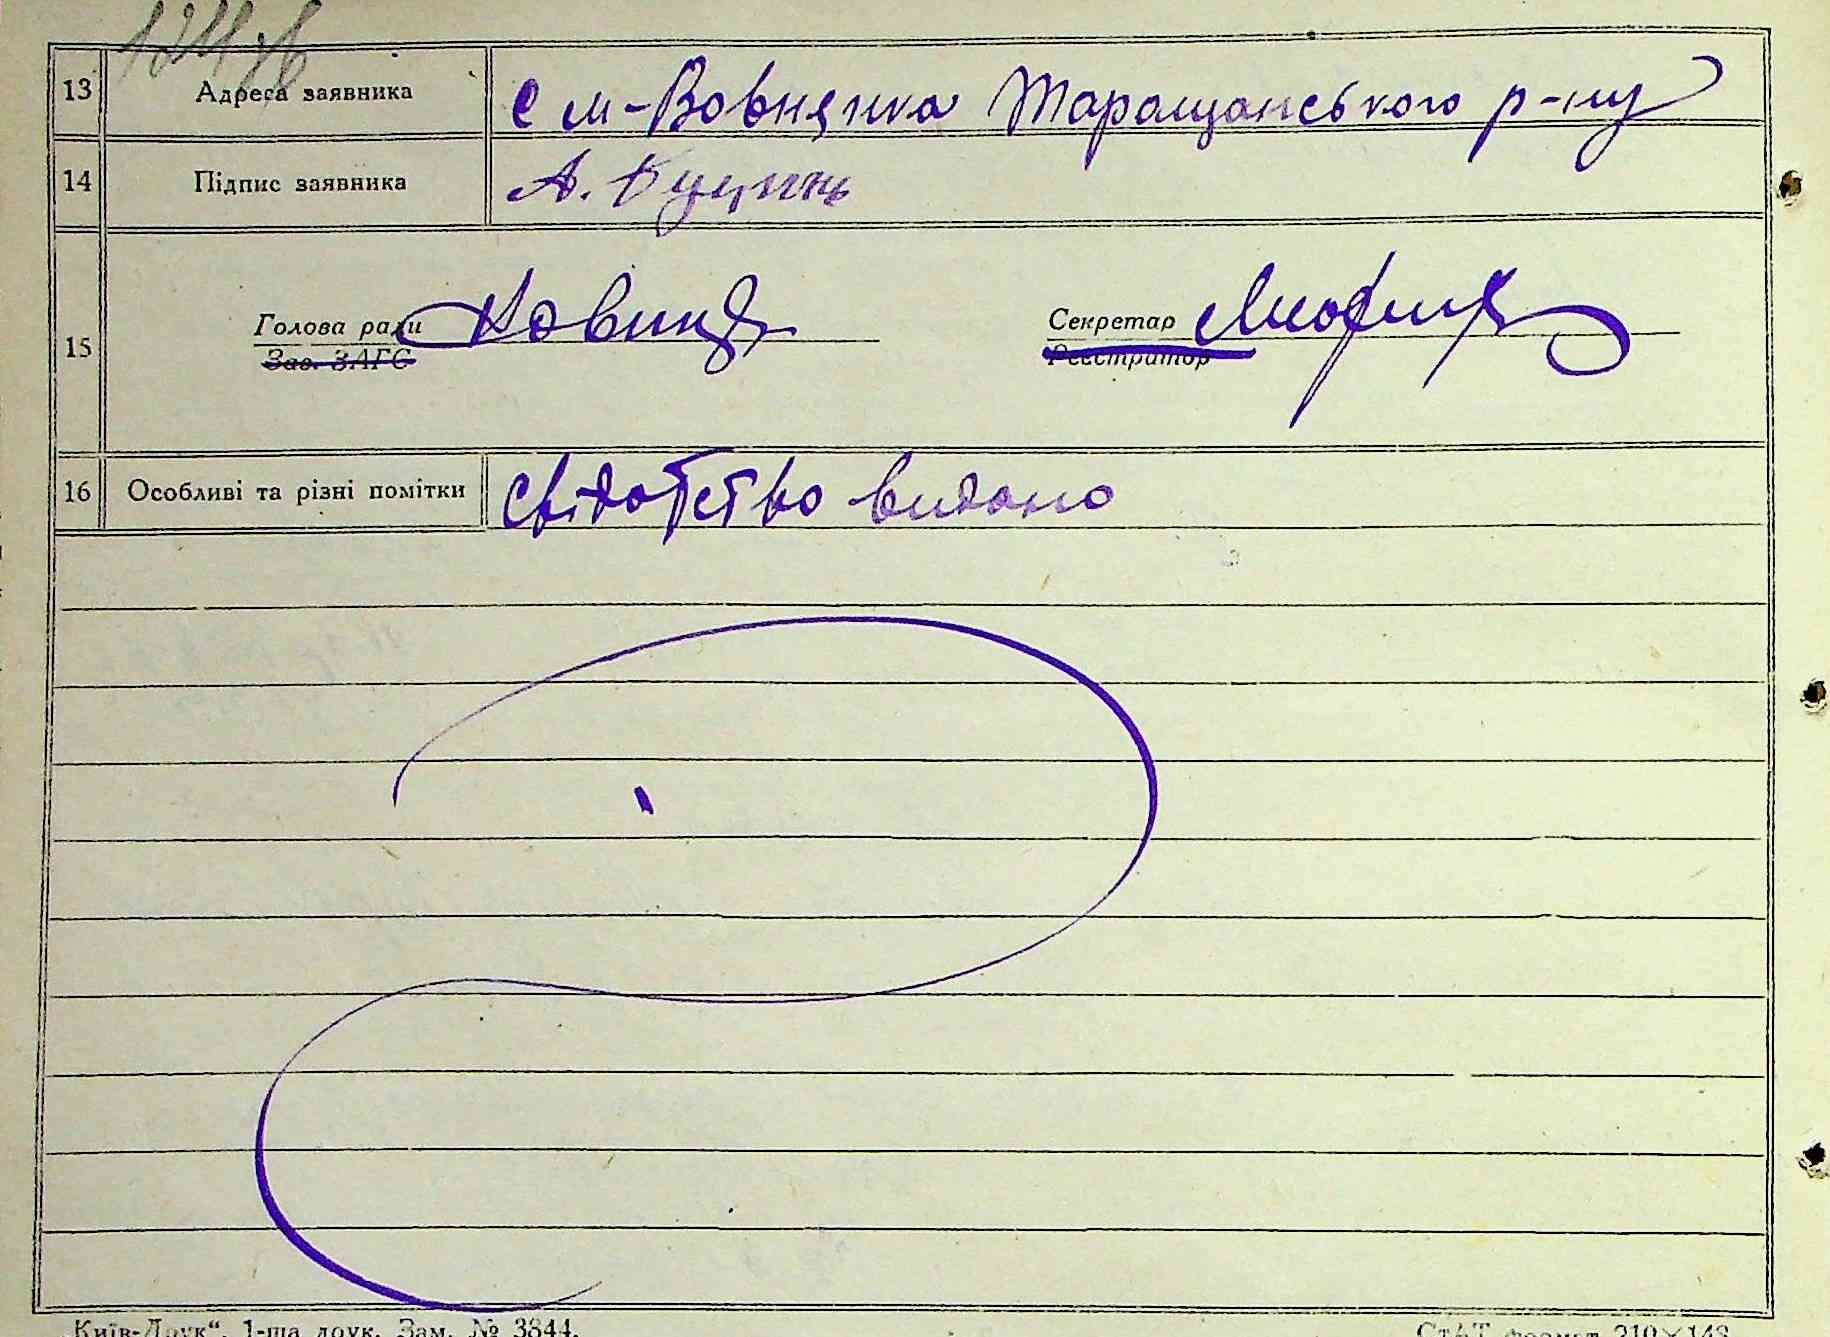 13 Адреса заявника с м-Вовнянка Таращанського р-ну
14 Підпис заявника А. Куцинь
15
Голова ради Секретар
Зав. ЗАГС Реєстратор
16 Особливі та різні помітки свідотство видано
„Київ-Друк“, 1-ша друк. Зам. № 3844. СтАТ формат 210×148